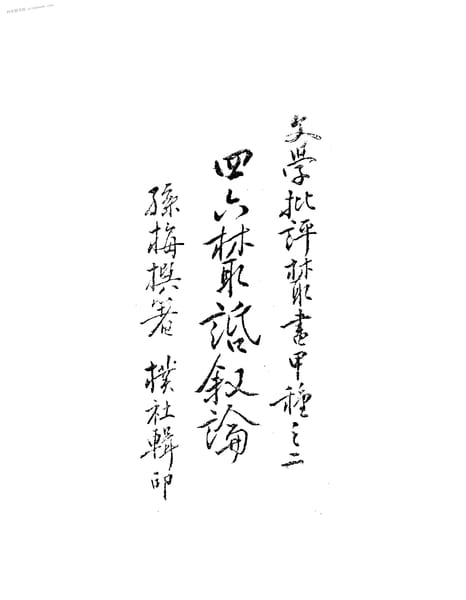 文學批評藂書甲種之二
四六藂話叙論
孫梅撰著 樸社輯印